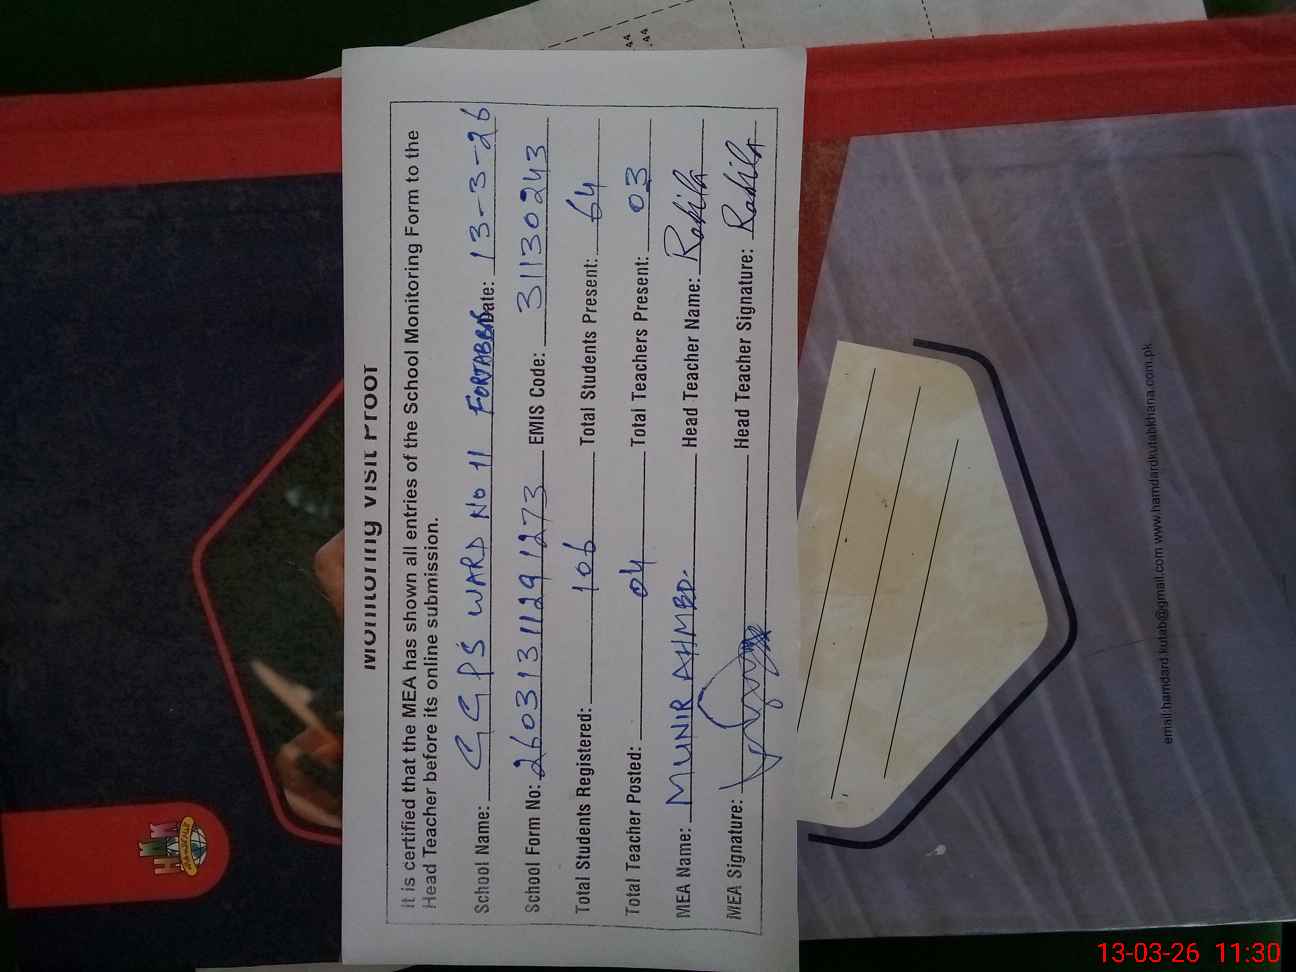 Monitoring Visit Proof
It is certified that the MEA has shown all entries of the School Monitoring Form to the
Head Teacher before its online submission.
School Name: GGPS WARD No 11 FORTABBAS Date: 13-3-26
School Form No: 26031311291273 EMIS Code: 31130243
Total Students Registered: 106 Total Students Present: 64
Total Teacher Posted: 04 Total Teachers Present: 03
MEA Name: MUNIR AHMED. Head Teacher Name: Rahila
MEA Signature: Head Teacher Signature: Rahila
email:hamdard.kutab@gmail.com www.hamdardkutabkhana.com.pk
44
44
13-03-26 11:30